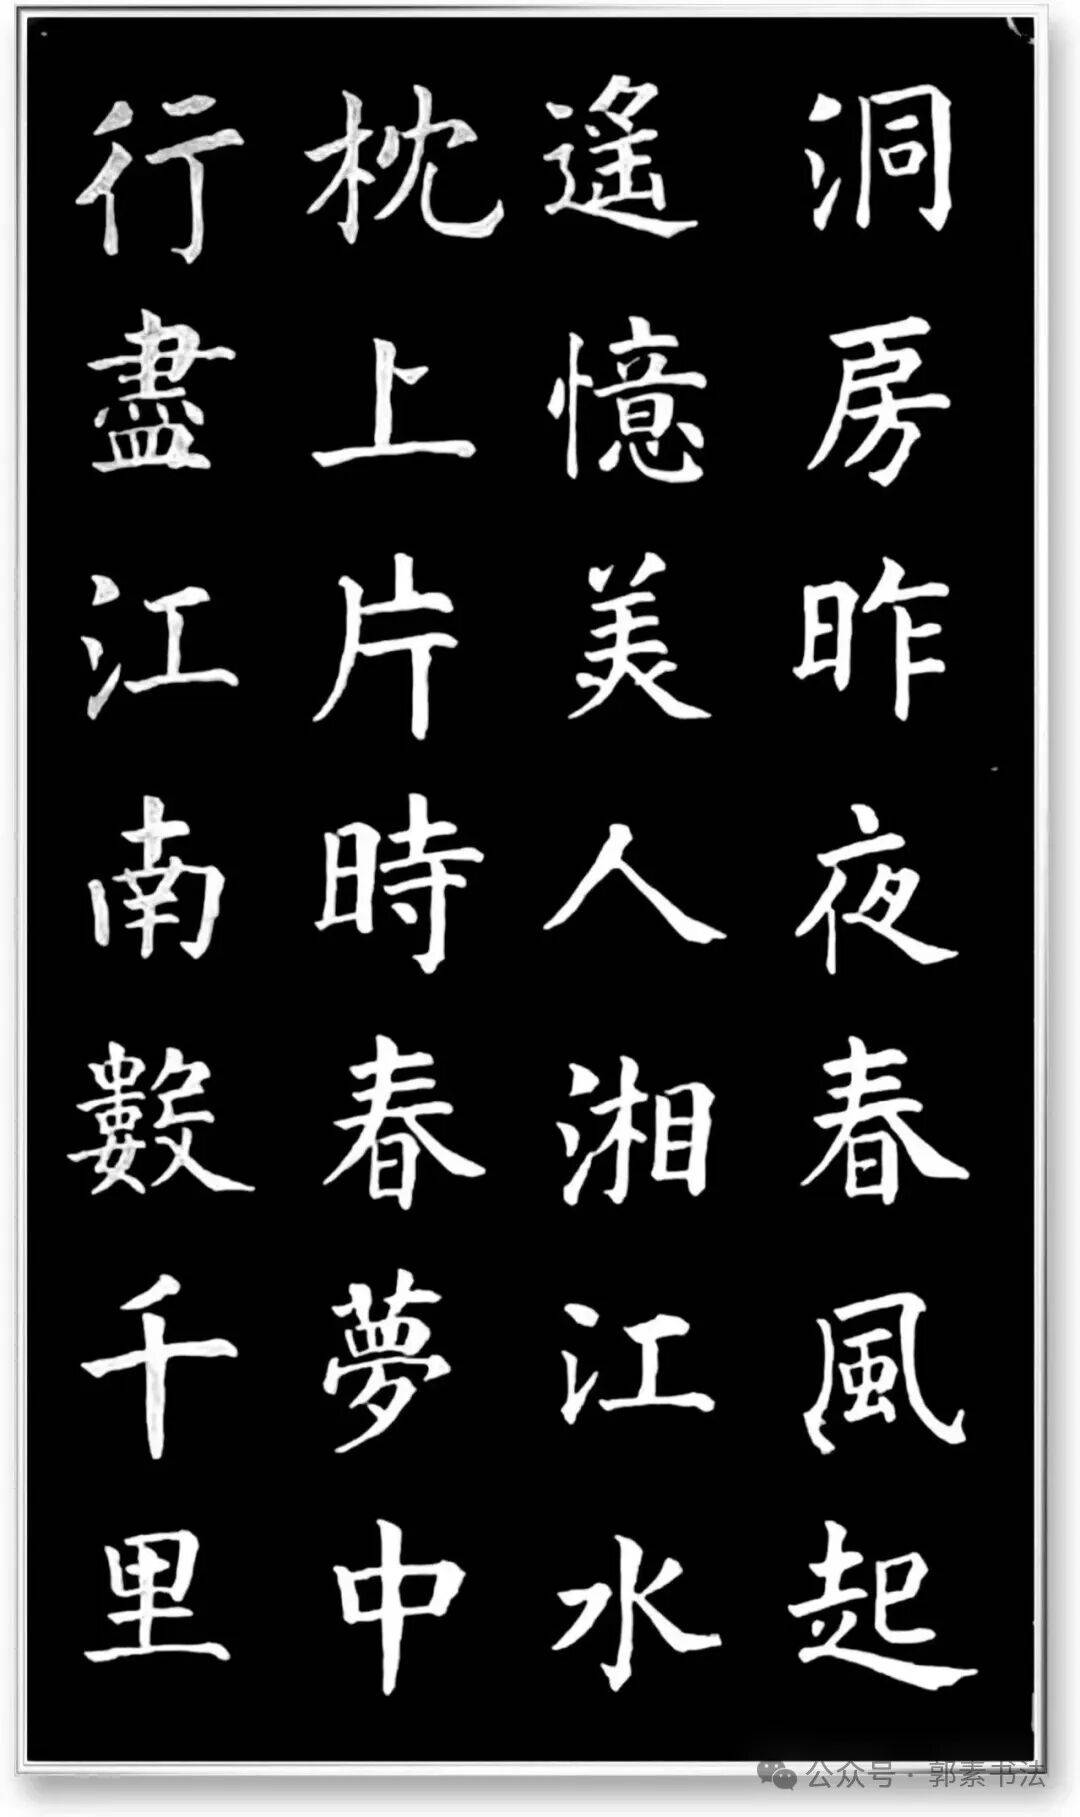 洞房昨夜春風起
遙憶美人湘江水
枕上片時春夢中
行盡江南數千里
公众号·郭素书法